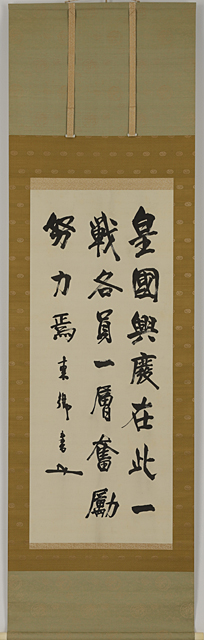 皇國興廢在此一
戰各員一層奮勵
努力焉 東郷書